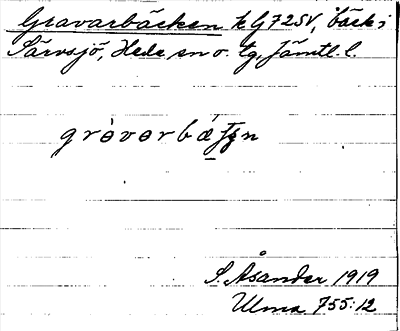 Gravarbäcken k G725V, bäck i
Särvsjö, Hede sn o. tg, Jämtl. l.
S. Åsander 1919
Ulma 755:12